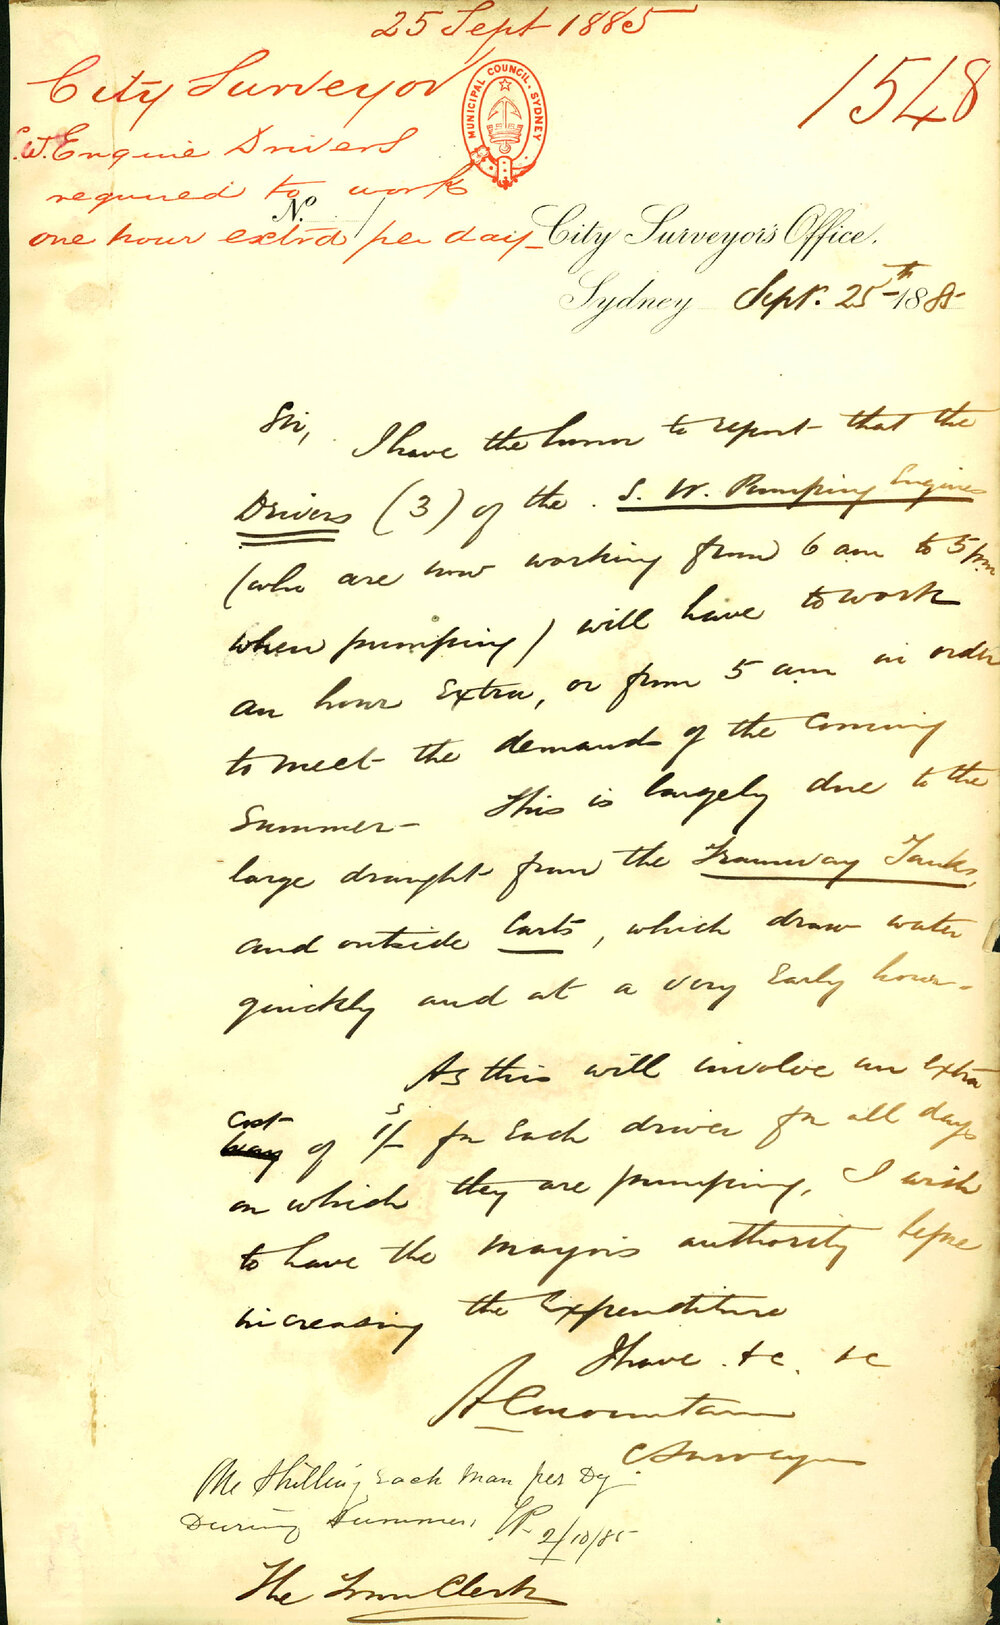 25 Sept 1885
City Surveyor
1548
MUNICIPAL COUNCIL. SYDNEY
S.W. Engine Drivers
required to work
No.
one hour extra per day_
City Surveyor's Office.
Sydney Sept. 25th 1885
Sir,
I have the honor to report that the
Drivers (3) of the S. W. Pumping Engines
(who are now working from 6 am to 5 pm
when pumping) will have to work
an hour extra, or from 5 am in order
to meet the demands of the Coming
Summer - This is largely due to the
large draught from the Tramway Tanks,
and outside Carts, which draw water
quickly and at a very Early hour -
As this will involve an Extra
Cost
of 1/- for Each driver for all days
on which they are pumping, I wish
to have the Mayors authority before
increasing the Expenditure
I have &c. &c
A C Mountain
C Surveyor
One Shilling Each Man per Dy
During Summer. 2/10/85
The Town Clerk